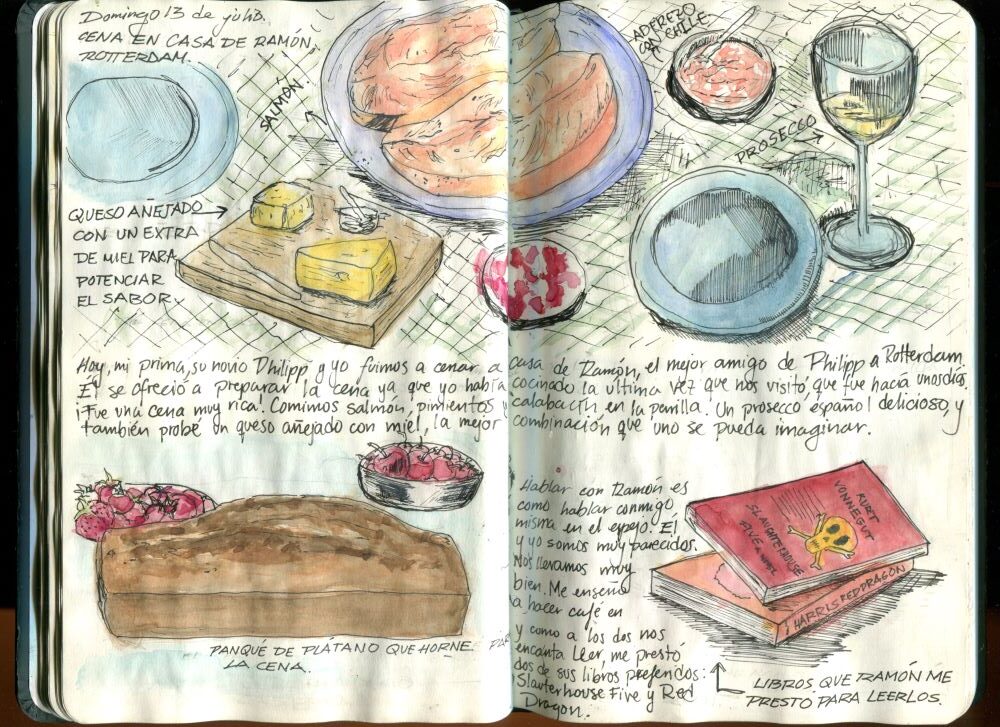 Domingo 13 de julio.
CENA EN CASA DE RAMÓN,
ROTTERDAM.
SALMÓN
ADEREZO
CON CHILE
PROSECCO
QUESO AÑEJADO
CON UN EXTRA
DE MIEL PARA
POTENCIAR
EL SABOR.
Hoy, mi prima, su novio Philipp y yo fuimos a cenar a casa de Ramón, el mejor amigo de Philipp a Rotterdam.
Él se ofreció a preparar la cena ya que yo había cocinado la última vez que nos visitó, que fue hacía unos días.
¡Fue una cena muy rica! Comimos salmón, pimientos y calabacín en la parrilla. Un prosecco español delicioso, y
también probé un queso añejado con miel, la mejor combinación que uno se pueda imaginar.
PANQUÉ DE PLÁTANO QUE HORNE. PAR
LA CENA.
Hablar con Ramón es
como hablar conmigo
misma en el espejo. Él
y yo somos muy parecidos.
Nos llevamos muy
bien. Me enseñó
a hacer café en
y como a los dos nos
encanta leer, me prestó
dos de sus libros preferidos:
Slauterhouse Five y Red
Dragon.
KURT
VONNEGUT
SLAUGHTERHOUSE
FIVE A NOVEL
HARRIS RED DRAGON
LIBROS QUE RAMÓN ME
PRESTÓ PARA LEERLOS.